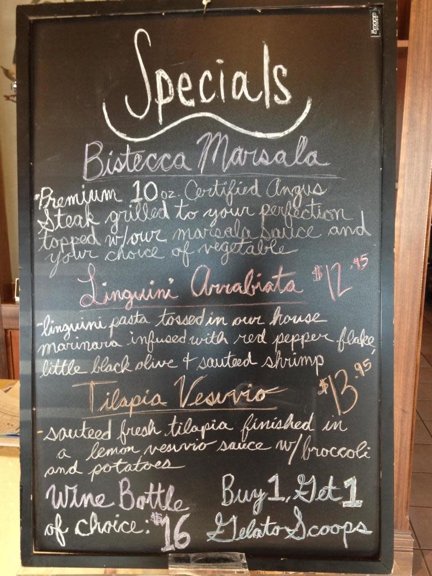 Specials
Bistecca Marsala
-Premium 10 oz. Certified Angus
Steak grilled to your perfection
topped w/our marsala sauce and
your choice of vegetable
Linguini Arrabiata $12.95
-linguini pasta tossed in our house
marinara infused with red pepper flake,
little black olive + sauteed shrimp
Tilapia Vesuvio $13.95
-sauteed fresh tilapia finished in
a lemon vesuvio sauce w/broccoli
and potatoes
Wine Bottle
of choice: $16
Buy 1, Get 1
Gelato Scoops